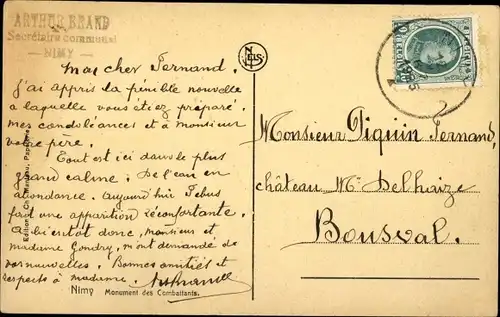 ARTHUR BRAND
Secrétaire communal
— NIMY —
Mon cher Fernand.
J'ai appris la pénible nouvelle
à laquelle vous étiez préparé.
mes condoléances et à monsieur
votre père.
Tout est ici dans le plus
grand calme. De l'eau en
abondance. Aujourd'hui Febus
fait une apparition réconfortante.
A bientôt donc, monsieur et
madame Gondry, m'ont demandé de
vos nouvelles. Bonnes amitiés et
respects à madame.
Nimy Monument des Combattants.
NELS
Monsieur Piquin Fernand,
château Mr Delhaize
Bousval.